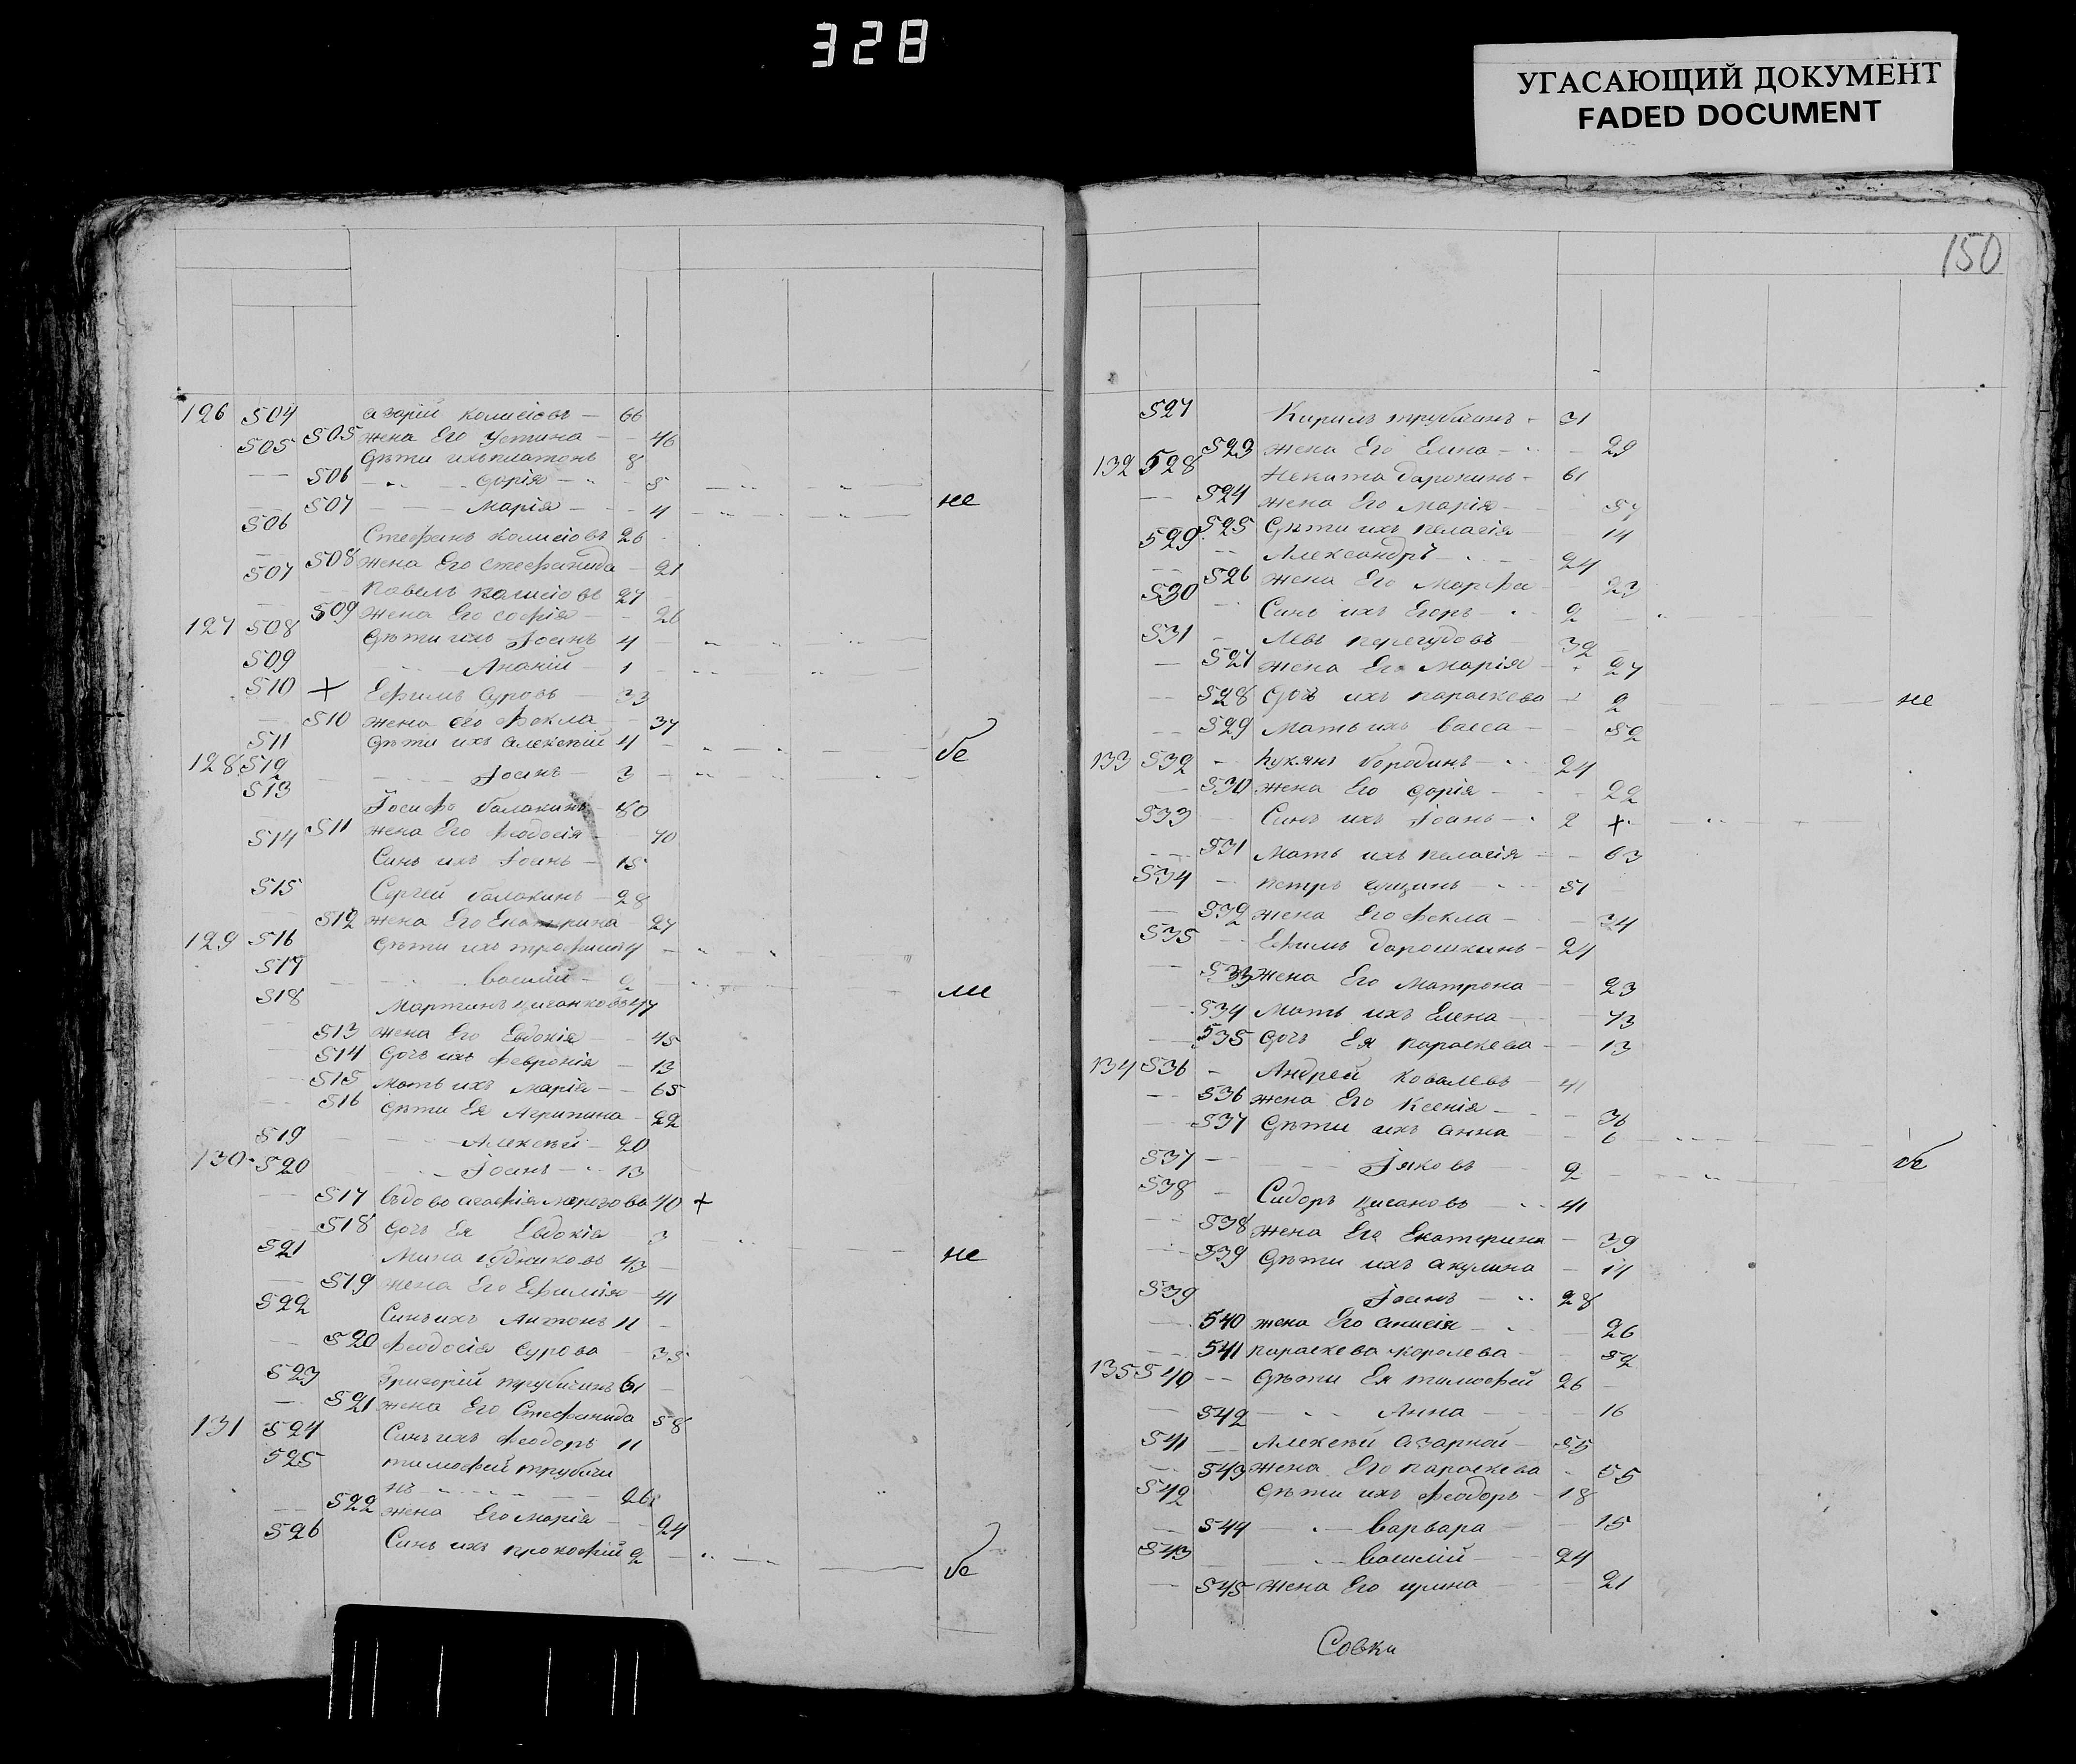 328
УГАСАЮЩИЙ ДОКУМЕНТ
FADED DOCUMENT
126 504 азарій 66
505 505 жена Его Устина 46
дѣти ихъ платонъ 8
506 дарія 5
507 Марія 4 не
506 Стефанъ 26
508 жена Его стефанида 21
507 Павелъ 27
509 жена Его софія 26
127 508 дѣти ихъ Іоанъ 4
509 Ананій 1
510 + Ефимъ суровъ 33
510 жена его Фекла 37
511 дѣти ихъ алексѣй 4 бе
128 512 Іоанъ 3
513 Іосифъ балакинъ 80
511 жена Его Феодосія 70
514 Синъ ихъ Іоанъ 15
515 Сергей балакинъ 28
512 жена Его Екатерина 27
129 516 дѣти ихъ трофимъ 4
517 василій 2
518 Мартинъ циганковъ 47
513 жена Его Евдокія 45
514 дочь ихъ Февронія 13
515 мать ихъ марія 65
516 дѣти Ея Агрипина 22
519 Алексѣй 20
130 520 Іоанъ 13
517 вдова агафія морозова 40 +
518 дочь Ея Евдокія 3
521 Мина 43 не
519 жена Его Ефимія 41
522 Синъ ихъ Антонъ 11
520 Феодосія Сурова 35
523 Григорій трубчинъ 61
521 жена Его Стефанида 58
131 524 Синъ ихъ Феодоръ 11
525 тимофей трубчи
нъ 26
522 жена Его марія 24
526 Синъ ихъ прокофій 2 бе
150
527 Кирилъ трубчинъ 31
523 жена Его Елена 29
132 528 Никита 61
524 жена Его Марія 57
525 дѣти ихъ пелагія 14
529 Александръ 24
526 жена Его Марфа 23
530 Синъ ихъ Егоръ 2
531 Левъ перегудовъ 32
527 жена Его Марія 27
528 дочь ихъ параскева 2 не
529 Мать ихъ васса 52
133 532 Лукянъ бородинъ 24
530 жена Его дарія 22
533 Синъ ихъ Іоанъ 2 +
531 Мать ихъ пелагія 63
534 петръ 51
532 жена Его Фекла 34
535 Ефимъ дорошкинъ 24
533 жена Его Матрона 23
534 Мать ихъ Елена 43
535 дочь Ея параскева 13
134 536 Андрей Ковалевъ 41
536 жена Его Ксенія 36
537 дѣти ихъ анна 6
537 Іяковъ 2 бе
538 Сидоръ цигановъ 41
538 жена Его Екатерина 39
539 дѣти ихъ акулина 14
539 Іоанъ 28
540 жена Его анисія 26
541 параскева королева 52
135 540 дѣти Ея тимофей 26
542 Анна 16
541 Алексѣй Азарной 55
543 жена Его параскева 55
542 дѣти ихъ Феодоръ 18
544 варвара 15
543 василій 24
545 жена Его ирина 21
Совки